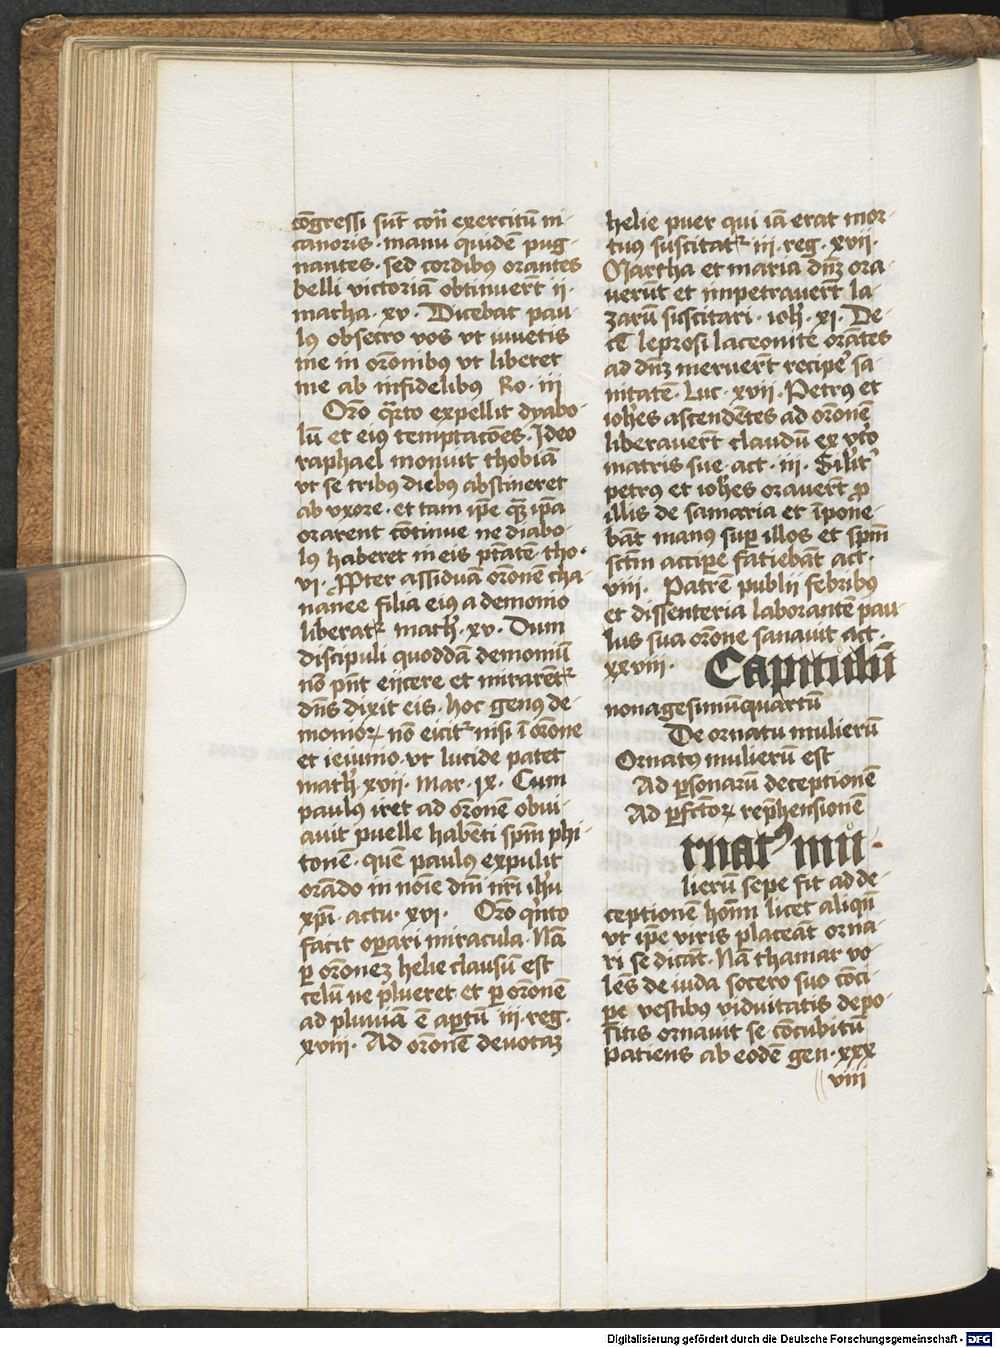 cōgressi sūt con̄ exercitū ni-
canoris · manu quidē pug-
nantes · sed cordibꝯ orantes
belli victoriā obtinuerūt ij ·
macha · xv · Dicebat pau-
lꝯ obsecro vos vt iuuetis
me in orōnibus vt liberet
me ab infidelibus Ro · iii
Orō q̄rto expellit dyabo-
lū et eiꝯ temptacōes · Ideo
raphael monuit thobiā
vt se tribꝯ diebꝯ abstineret
ab vxore · et tam ip̄e q̄ ip̄a
orarent cōtinue ne diabo-
lꝯ haberet in eis ptātē tho ·
vi · Propter assiduā orōnē cha-
nanee filia eiꝯ a demonio
liberatᷣ math · xv · Dum
discipuli quoddā demoniū
nō pn̄t eijcere et mirarētᷣ
dn̄s dixit eis · hoc genꝯ de-
moniorꝝ nō eicitᷣ nisi ī orōne
et ieiunio · vt lucide patet
math xvii · Mar · ix · Cum
paulꝯ iret ad orōnē obui-
auit puelle habēti spm̄ phi-
tonē · quē paulꝯ expulit
orādo in noīe dn̄i nr̄i ih̄u
xp̄i · actu · xvi · Orō q̄nto
facit oꝑari miracula · Nā
ꝑ orōnez helie clausū est
celū ne plueret et ꝑ orōnē
ad pluuiā ē aꝑtū iij · reg ·
xviii · Ad orōnē deuotaz
helie puer qui iā erat mor-
tuꝯ suscitatᷣ iij · reg · xvij ·
Martha et maria dn̄z ora-
uerūt et impetrauerūt la-
zarū suscitari · ioh · xi · De-
cē leprosi laceonite orātes
ad dn̄z meruerūt reciꝑe sa-
nitatē · Luc · xvij · Petrꝯ et
ioh̄es ascendētes ad orōnē
liberauerūt claudū ex vt̄o
matris sue · act · iij · Silīr
petrꝯ et ioh̄es orauerūt ꝓ
illis de samaria et īpone-
bāt manꝯ suꝑ illos et spm̄
sctm̄ acciꝑe fatiebāt act ·
viii · Patrē publii febribꝯ
et dissenteria laborantē pau-
lus sua orōne sanauit act ·
xxviii · Capitulū
nonagesimūquartū
De ornatu mulierū
Ornatꝯ mulierū est
Ad ꝑsonarū deceptionē
Ad ꝑfctōrꝝ rep̄hensionē
rnatꝯ mu-
lierū sepe fit ad de-
ceptionē hoīm licet aliqn̄
vt ip̄e viris placeāt orna-
ri se dicāt · Nā thamar vo-
lēs de iuda socero suo cōci-
pe vestibus viduitatis depo-
sitis ornauit se cōcubitū
patiens ab eodē gen · xxx
viii
Digitalisierung gefördert durch die Deutsche Forschungsgemeinschaft - DFG